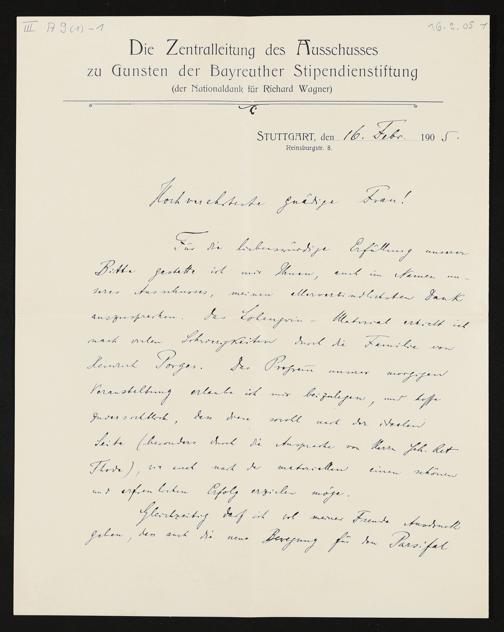 III A 9 (1) - 1
16.2.05 1
Die Zentralleitung des Ausschusses
zu Gunsten der Bayreuther Stipendienstiftung
(der Nationaldank für Richard Wagner)
STUTTGART, den 16. Febr. 1905.
Reinsburgstr. 8.
Hochverehrteste gnädige Frau!
Für die liebenswürdige Erfüllung unserer
Bitte gestatte ich mir Ihnen, auch im Namen un-
seres Ausschusses, meinen allerverbindlichsten Dank
auszusprechen. Das Lohengrin-Material erhielt ich
nach vielen Schwierigkeiten durch die Familie von
Heinrich Porges. Das Programm unserer morgigen
Veranstaltung erlaube ich mir beizulegen, und hoffe
zuversichtlich, dass diese sowohl nach der idealen
Seite (besonders durch die Ansprache von Herrn Geh. Rat
Thode), wie auch nach der materiellen einen schönen
und erfreulichen Erfolg erzielen möge.
Gleichzeitig darf ich wol meiner Freude Ausdruck
geben, dass auch die neue Bewegung für den Parsifal